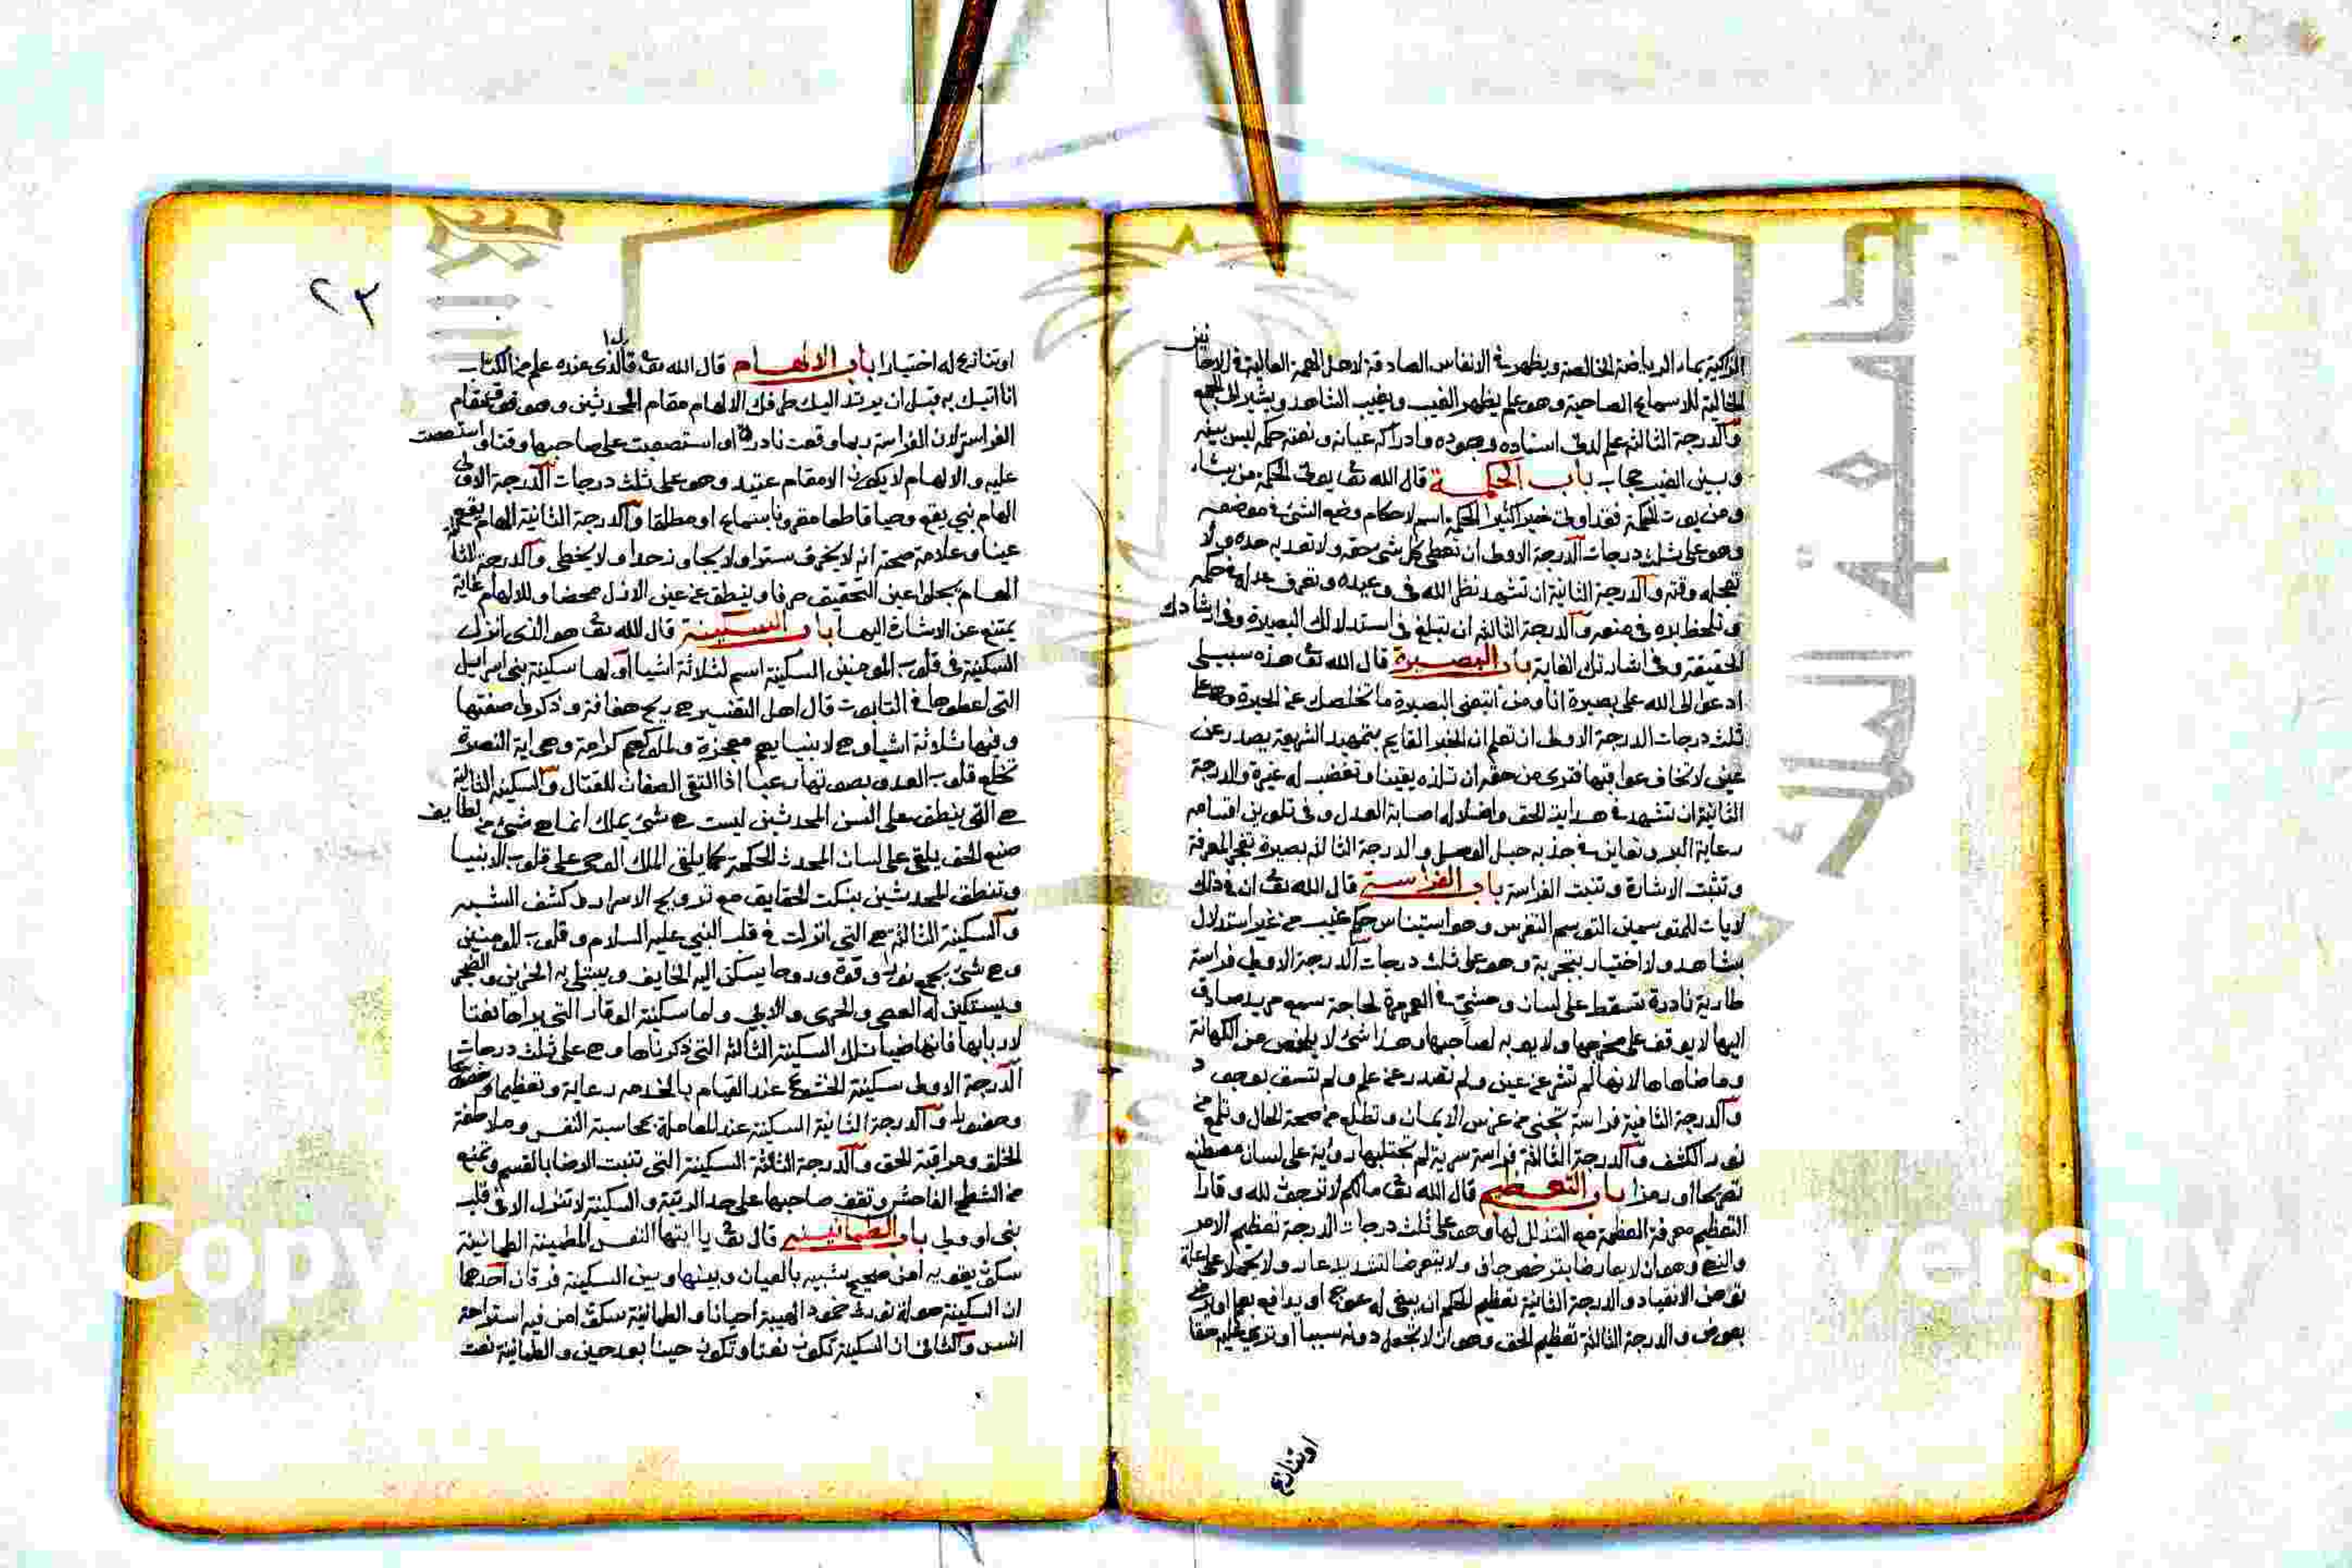 الزاكية بماء الرياضة الخالصة ويظهر في الانفاس الصادقة لاهل الهمة العالية في الاحايين
الخالية للاسماع الصاحية وهو علم يظهر الغيب ويغيب الشاهد ويشير الى الجمع
والدرجة الثالثة علم لدني اسناده وجوده وادراكه عيانه ونعته حكمه ليس بينه
وبين الغيب حجاب باب الحكمة قال الله تع يوتى الحكمة من يشاء
ومن يوت الحكمة فقد اوتى خيرا كثيرا الحكمة اسم لاحكام وضع الشئ في موضعه
وهو على ثلث درجات الدرجة الاولى ان تعطى كل شئ حقه ولا تعد به حده ولا
تعجله وقته والدرجة الثانية ان تشهد نظر الله في وعيده وتعرف عدله في حكمه
وتلحظ بره في منعه والدرجة الثالثة ان تبلغ في استدلالك البصيرة وفي ارشادك
الحقيقة وفي اشارتك الغاية باب البصيرة قال الله تع هذه سبيلى
ادعوا الى الله على بصيرة انا ومن اتبعنى البصيرة ما تخلصك عن الحيرة وهو على
ثلث درجات الدرجة الاولى ان تعلم ان الخبر القايم بتمهيد الشريعة يصدر عن
عين لا تخاف عواقبها فترى من حقه ان تلزه يقينا وتغضب له غيرة والدرجة
الثانية ان تشهد في هداية الحق واضلاله اصابة العدل وفي تلوين اقسامه
رعاية البر وتعاين في جذبه حبل الوصل والدرجة الثالثة بصيرة تفجر المعرفة
وتثبت الاشارة وتنبت الفراسة باب الفراسة قال الله تع ان في ذلك
لايات للمتوسمين التوسم التفرس وهو استيناس حكم غيب من غير استدلال
بشاهد ولا اختيار بتجربة وهو على ثلث درجات الدرجة الاولى فراسة
طارية نادرة تسقط على لسان وحشى في العمر مرة لحاجة سمع مريد صادق
اليها لا يوقف على مخرجها ولا يوبه لصاحبها وهذا شئ لا يخلص من الكهانة
وما ضاهاها لانها لم تشر عن عين ولم تصدر عن علم ولم تسق بوجود
والدرجة الثانية فراسة تجنى من غرس الايمان وتطلع من صحة الحال وتلمع من
نور الكشف والدرجة الثالثة فراسة سرية لم تجتلبها روية على لسان مصطنع
تصريحا او رمزا باب التعظيم قال الله تع ما لكم لا ترجون لله وقارا
التعظيم معرفة العظمة مع التذلل لها وهو على ثلث درجات الدرجة تعظيم الامر
والنهي وهو ان لا يعارضا بترخص جاف ولا يتعرضا لتشديد غال ولا يحملا على علة
توهن الانقياد والدرجة الثانية تعظيم الحكم ان يبغى له عوج او يدافع بعلم او يرضى
بعوض والدرجة الثالثة تعظيم الحق وهو ان لا تجعل دونه سببا او ترى عليه حقا
او تنازع
٢٣
او تنازع له اختيارا باب الالهام قال الله تع قال الذى عنده علم من الكتاب
انا اتيك به قبل ان يرتد اليك طرفك الالهام مقام المحدثين وهو فوق مقام
الفراسة لان الفراسة ربما وقعت نادرة او استصعبت على صاحبها وقتا واستعصت
عليه والالهام لا يكون الا مقام عتيد وهو على ثلث درجات الدرجة الاولى
الهام نبي يقع وحيا قاطعا مقرونا بسماع او مطلقا والدرجة الثانية الهام يقع
عينا وعلامة صحته انه لا يخرق سترا ولا يجاوز حدا ولا يخطى والدرجة الثالثة
الهام يجلوا عين التحقيق صرفا وينطق عن عين الازل محضا وللالهام غاية
يمتنع عن الاشارة اليها باب السكينة قال الله تع هو الذى انزل
السكينة في قلوب المومنين السكينة اسم لثلاثة اشيا اولها سكينة بنى اسرايل
التى اعطوها في التابوت قال اهل التفسير هي ريح هفافة وذكروا صفتها
وفيها ثلاثة اشيا وهي لانبيايهم معجزة ولملوكهم كرامة وهي اية النصرة
تخلع قلوب العدو بصوتها رعبا اذا التقى الصفان للقتال والسكينة الثانية
هي التى ينطق على السن المحدثين ليست هي شئ يملك انما هي شئ من لطايف
صنع الحق يلقى على لسان المحدث الحكمة كما يلقى الملك الوحي على قلوب الانبيا
وتنطق المحدثين بنكت الحقايق مع ترويح الاسرار وكشف الشبه
والسكينة الثالثة هي التى انزلت في قلب النبي عليه السلام وقلوب المومنين
وهي شئ يجمع نورا وقوة وروحا يسكن اليه الخايف ويتسلى به الحزين والضجر
ويستكين له العصى والجرى والابى واما سكينة الوقار التى يراها نعتا
لاربابها فانها ضيا تلك السكينة الثالثة التى ذكرناها وهي على ثلث درجات
الدرجة الاولى سكينة الخشوع عند القيام بالخدمة رعاية وتعظيما وخشوعا
وحضورا والدرجة الثانية السكينة عند المعاملة بمحاسبة النفس وملاطفة
الخلق ومراقبة الحق والدرجة الثالثة السكينة التى تثبت الرضا بالقسم وتمنع
من الشطح الفاحش وتقف صاحبها على حد الرتبة والسكينة لا تنزل الا في قلب
نبى او ولى باب الطمانينة قال تع يا ايتها النفس المطمينة الطمانينة
سكون يقويه امن صحيح شبيه بالعيان وبينها وبين السكينة فرقان احدهما
ان السكينة صولة تورث خمود الهيبة احيانا والطمانينة سكون امن فيه استراحة
انس والثانى ان السكينة تكون نعتا وتكون حينا بعد حين والطمانينة نعت